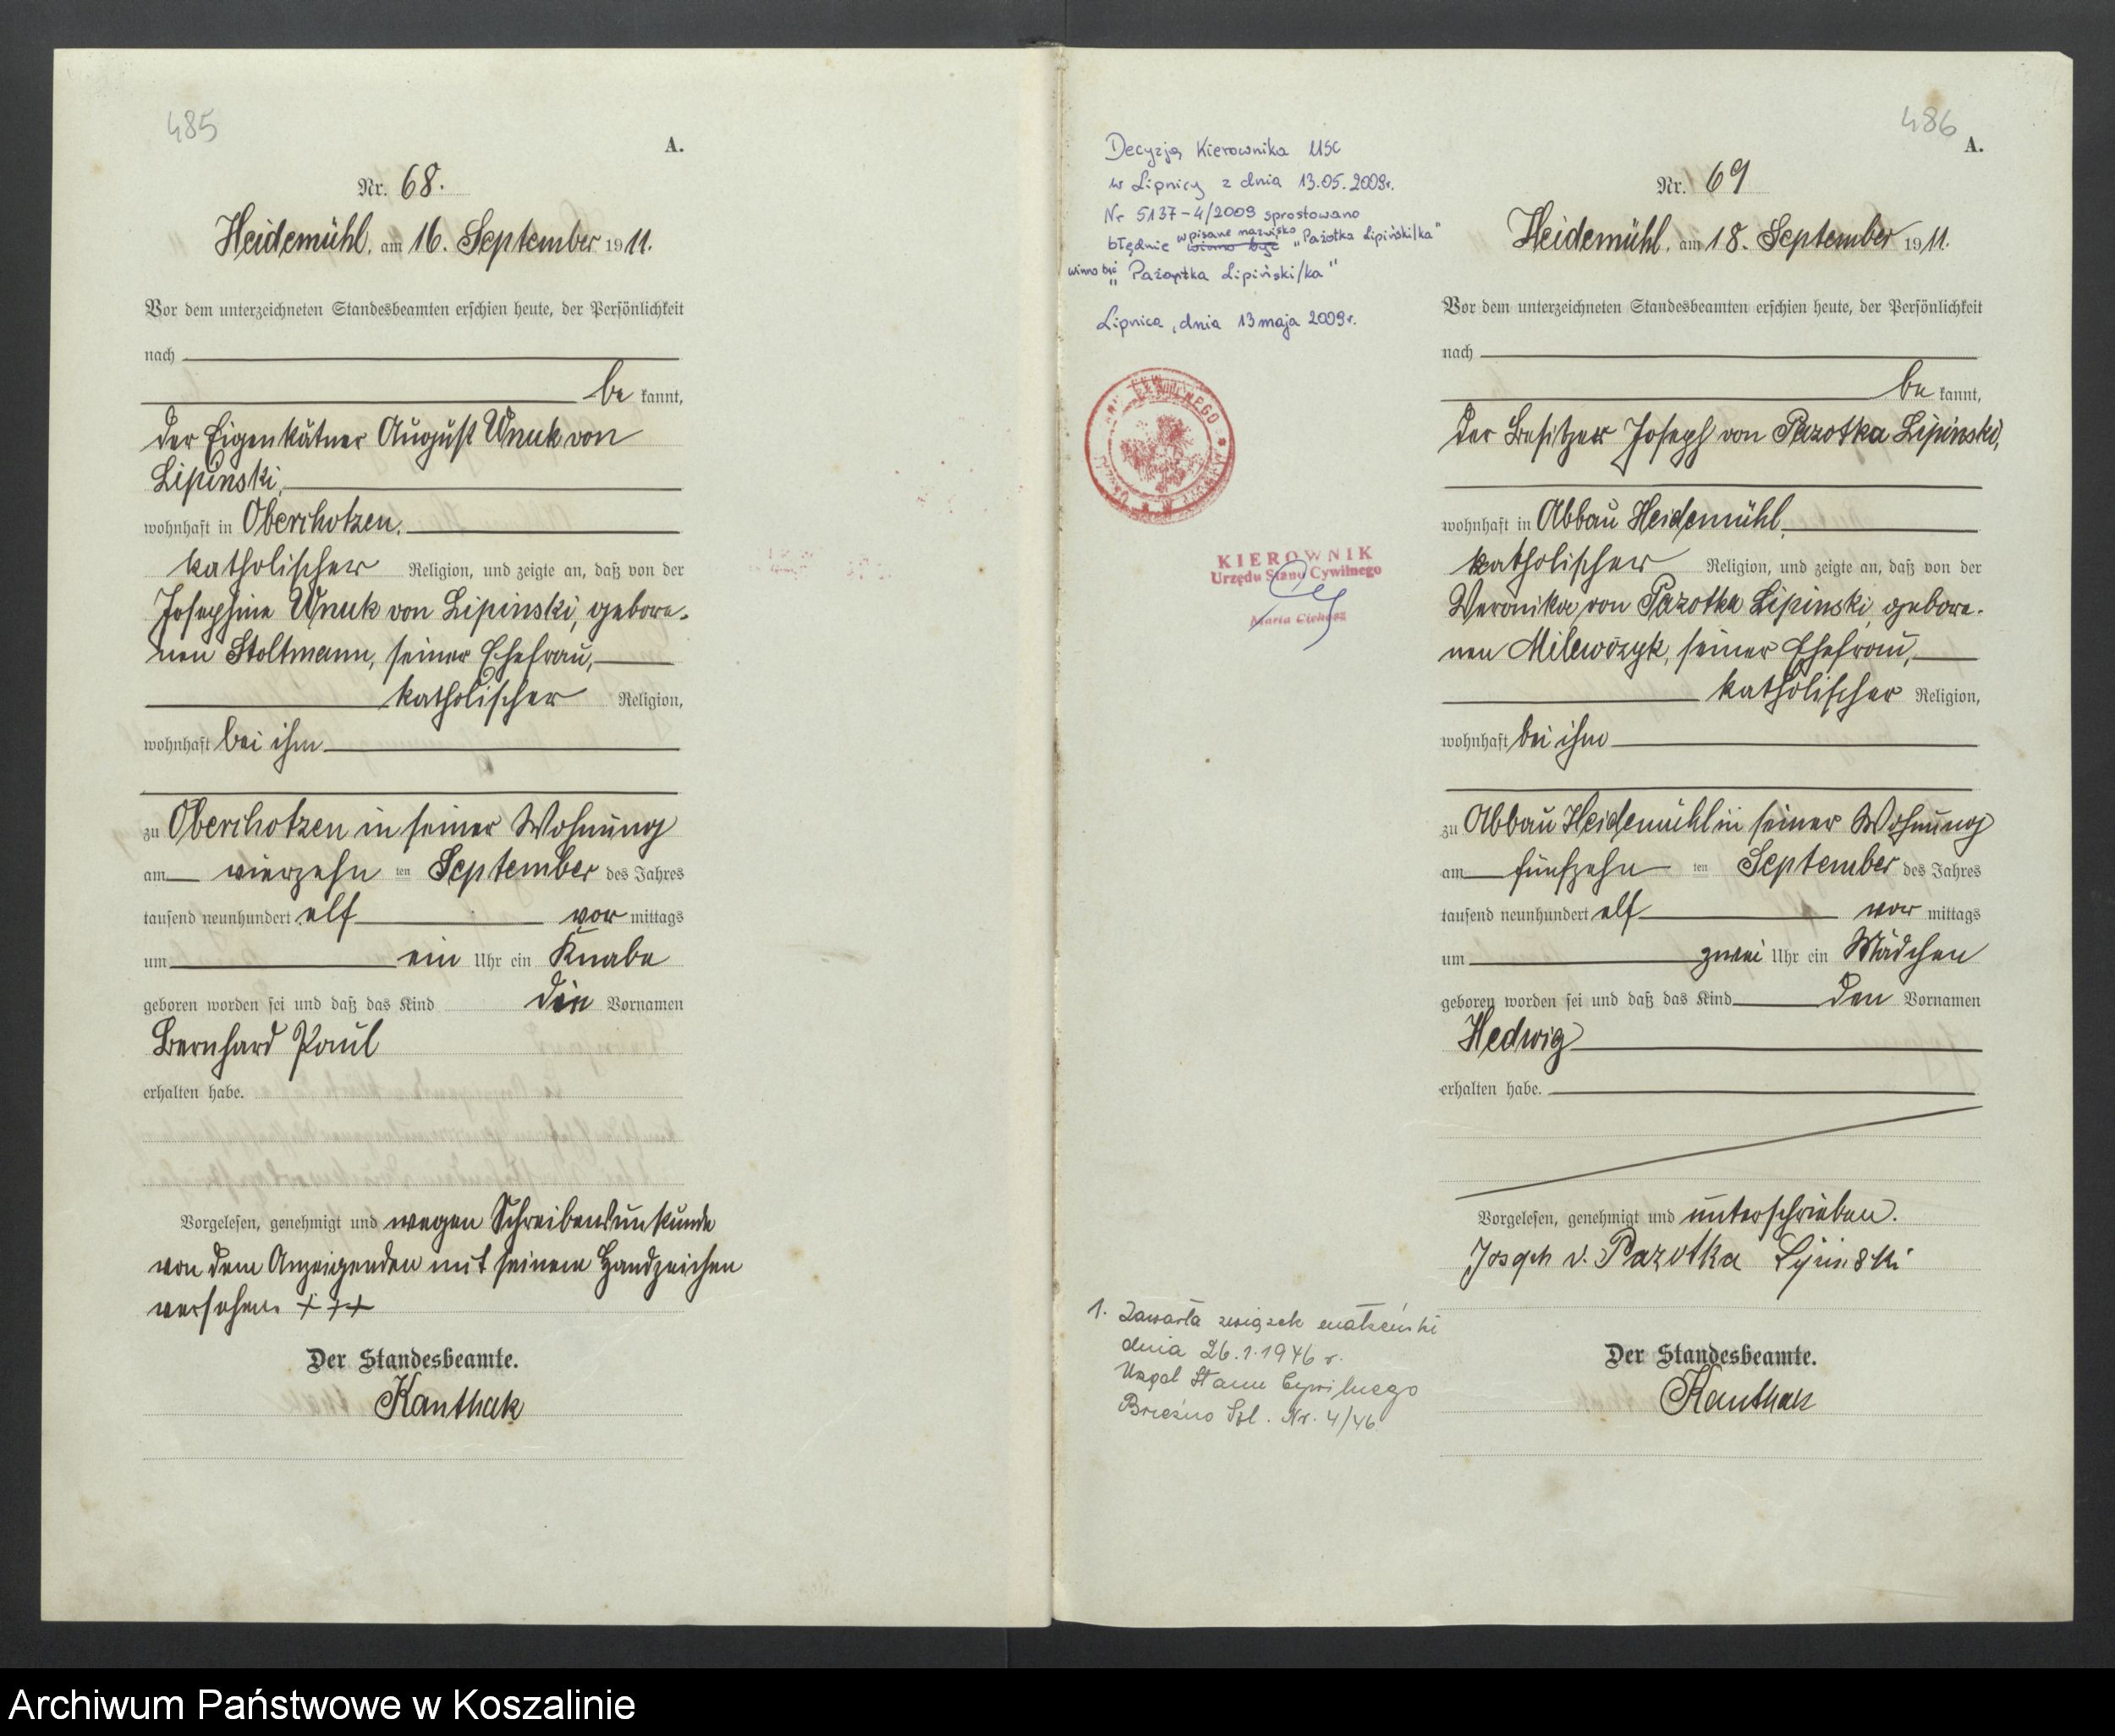 485
A.
Nr. 68.
Heidemühl, am 16. September 1911.
Vor dem unterzeichneten Standesbeamten erschien heute, der Persönlichkeit
nach
be kannt,
der Eigenkätner August Wnuk von
Lipinski,
wohnhaft in Oberchotzen,
katholischer Religion, und zeigte an, daß von der
Josephine Wnuk von Lipinski, gebore-
nen Stoltmann, seiner Ehefrau,
katholischer Religion,
wohnhaft bei ihm
zu Oberchotzen in seiner Wohnung
am vierzehn ten September des Jahres
tausend neunhundert elf vor mittags
um ein Uhr ein Knabe
geboren worden sei und daß das Kind die Vornamen
Bernhard Paul
erhalten habe.
Vorgelesen, genehmigt und wegen Schreibensunkunde
von dem Anzeigenden mit seinem Handzeichen
versehen. +++
Der Standesbeamte.
Kanthak
Decyzją Kierownika USC
w Lipnicy z dnia 13.05.2009r.
Nr 5137-4/2009 sprostowano
błędnie wpisane nazwisko winno być "Pażotka Lipiński/ka"
winno być "Pażątka Lipiński/ka"
Lipnica, dnia 13 maja 2009r.
KIEROWNIK
Urzędu Stanu Cywilnego
Maria
1. Zawarła związek małżeński
dnia 26.1.1946 r.
Urząd Stanu Cywilnego
Brzeźno Szl. Nr. 4/46
486
A.
Nr. 69
Heidemühl, am 18. September 1911.
Vor dem unterzeichneten Standesbeamten erschien heute, der Persönlichkeit
nach
be kannt,
der Besitzer Joseph von Pazotka Lipinski,
wohnhaft in Abbau Heidemühl,
katholischer Religion, und zeigte an, daß von der
Veronika von Pazotka Lipinski, gebore-
nen Milewczyk, seiner Ehefrau,
katholischer Religion,
wohnhaft bei ihm
zu Abbau Heidemühl in seiner Wohnung
am fünfzehn ten September des Jahres
tausend neunhundert elf vor mittags
um zwei Uhr ein Mädchen
geboren worden sei und daß das Kind den Vornamen
Hedwig
erhalten habe.
Vorgelesen, genehmigt und unterschrieben.
Joseph v. Pazotka Lipinski
Der Standesbeamte.
Kanthak
Archiwum Państwowe w Koszalinie